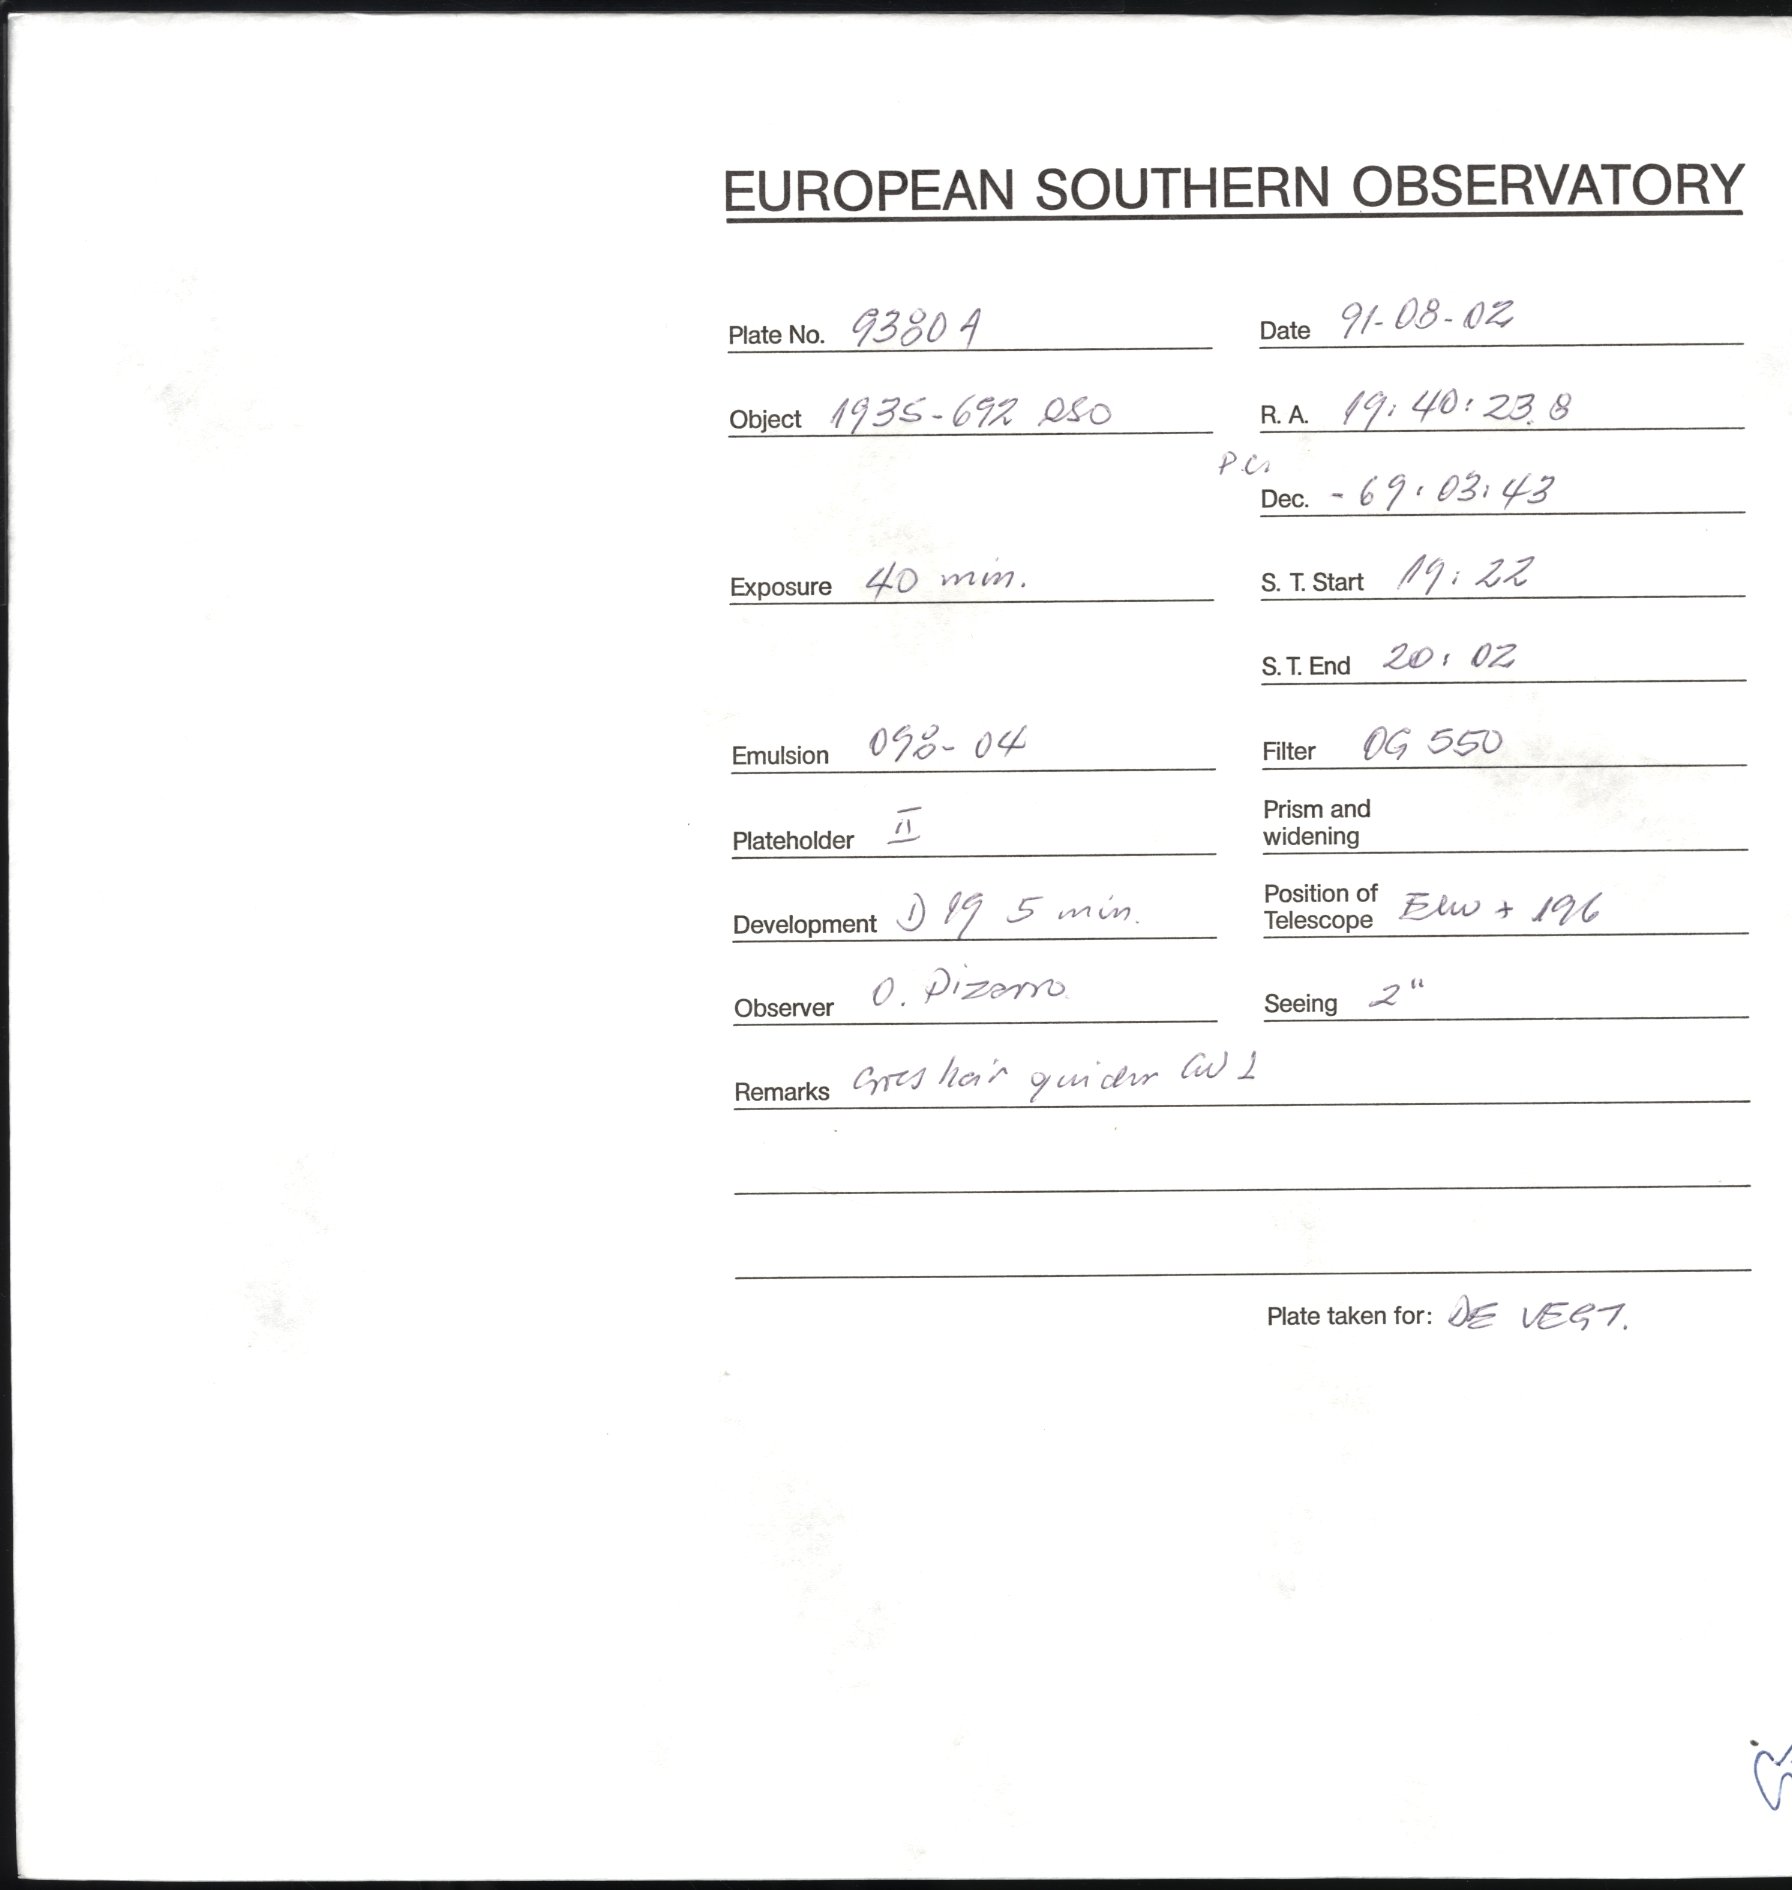 EUROPEAN SOUTHERN OBSERVATORY
Plate No. 9380 A
Date 91-08-02
Object 1935-692 QSO
R. A. 19:40:23.8
Dec. -69:03:43
Exposure 40 min.
S. T. Start 19:22
S. T. End 20:02
Emulsion 098-04
Filter OG 550
Plateholder II
Prism and
widening
Development D 19 5 min.
Position of
Telescope + 196
Observer O. Pizarro
Seeing 2"
Remarks
Plate taken for: DE VEGT.